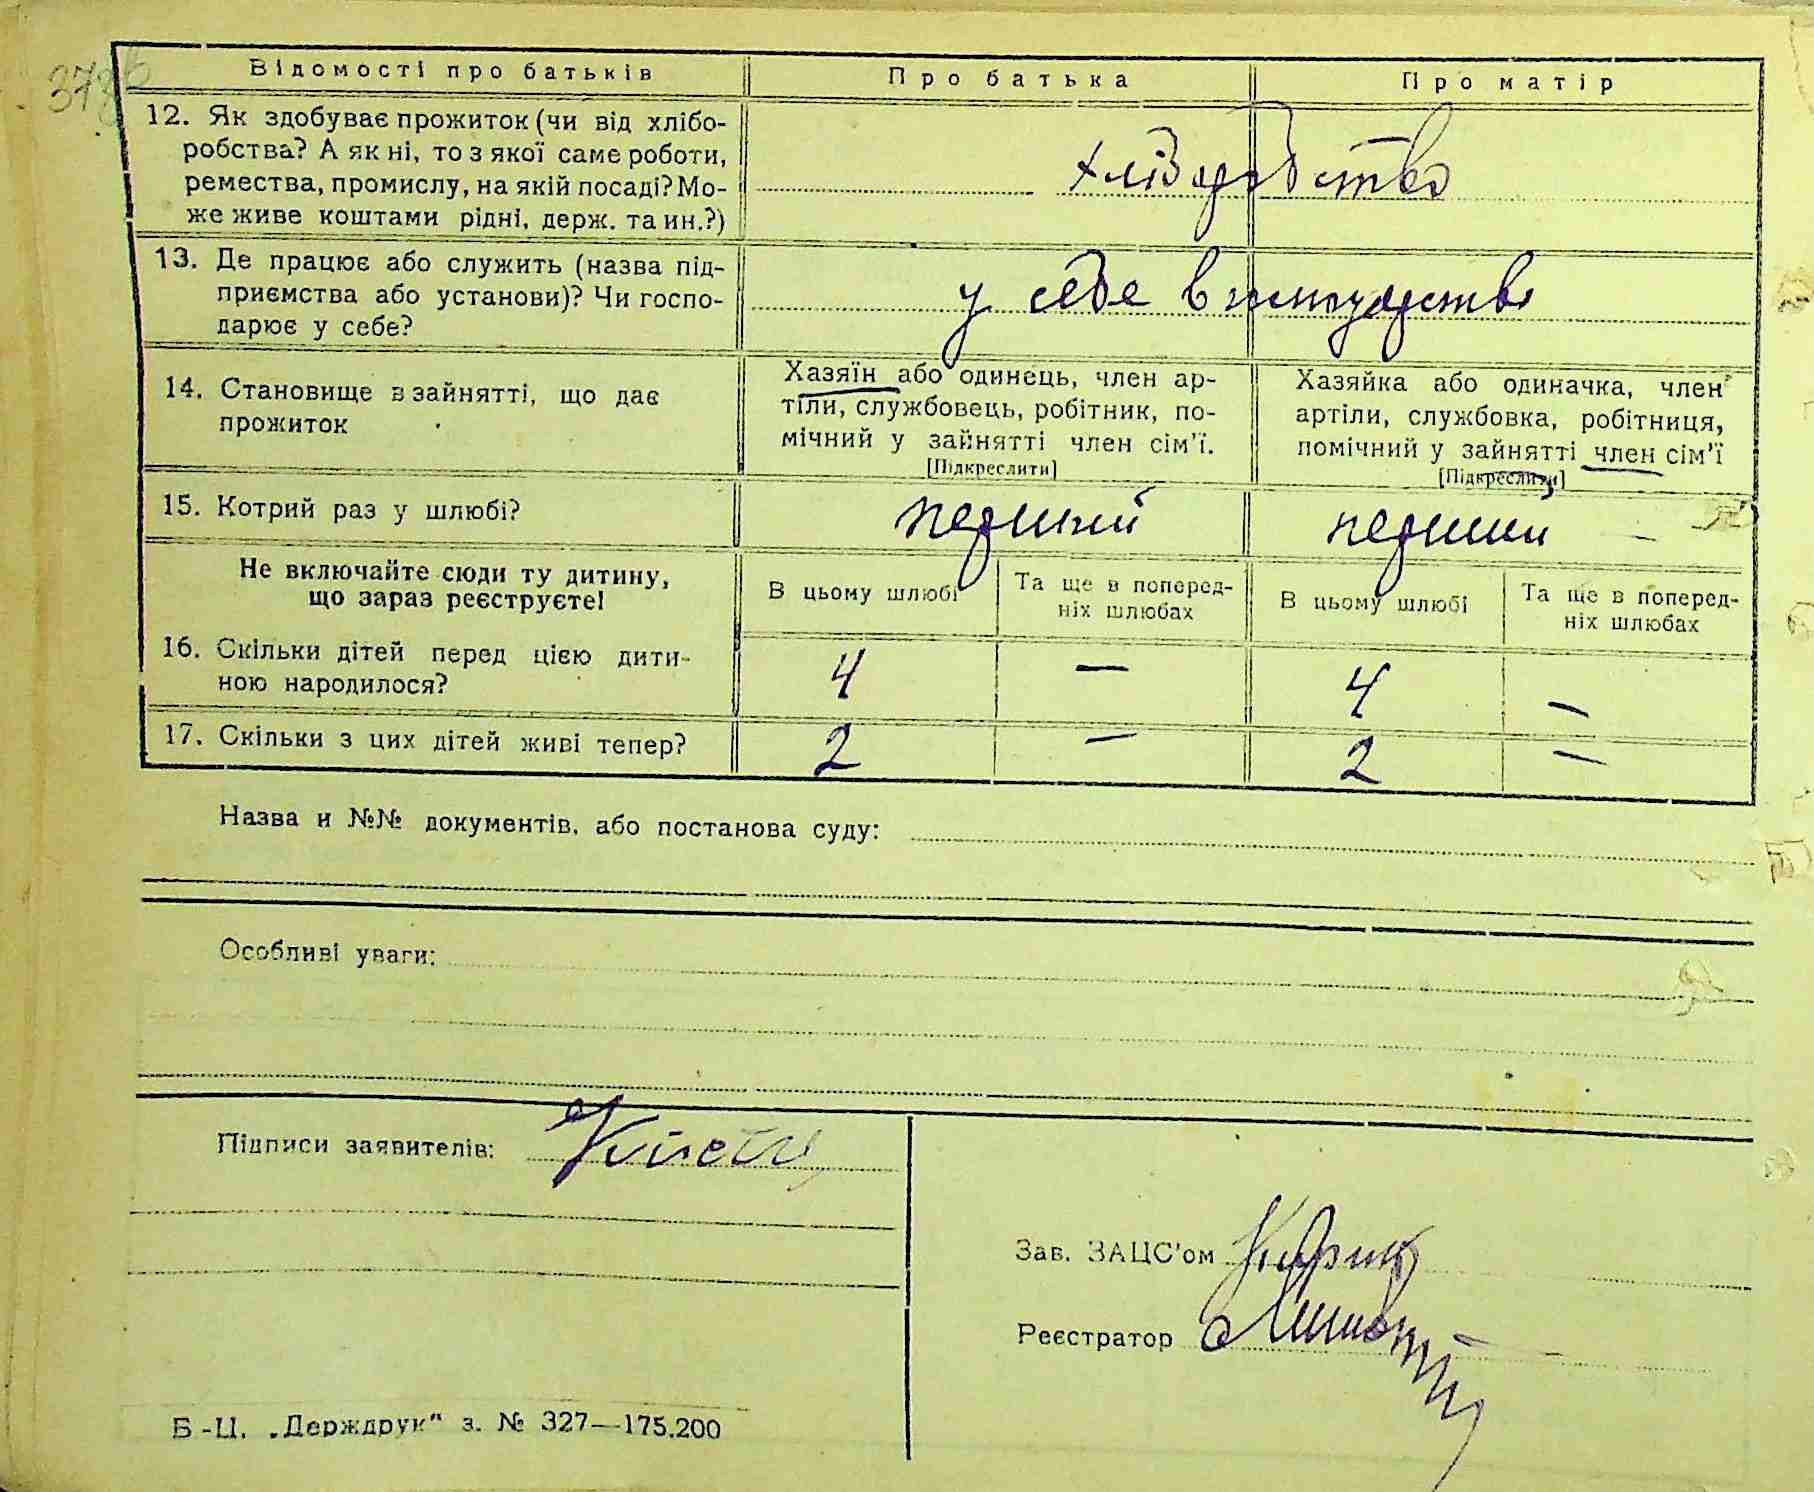 Відомості про батьків Про батька Про матір
12. Як здобуває прожиток (чи від хлібо-
робства? А як ні, то з якої саме роботи,
ремества, промислу, на якій посаді? Мо-
же живе коштами рідні, держ. та ин.?)
хліборобство
13. Де працює або служить (назва під-
приємства або установи)? Чи госпо-
дарює у себе?
у себе в господарстві
14. Становище в зайнятті, що дає
прожиток
Хазяїн або одинець, член ар-
тіли, службовець, робітник, по-
мічний у зайнятті член сім'ї.
[Підкреслити]
Хазяйка або одиначка, член
артіли, службовка, робітниця,
помічний у зайнятті член сім'ї
[Підкреслити]
15. Котрий раз у шлюбі? перший перший
Не включайте сюди ту дитину,
що зараз реєструєте!
В цьому шлюбі
Та ще в поперед-
ніх шлюбах
В цьому шлюбі
Та ще в поперед-
ніх шлюбах
16. Скільки дітей перед цією дити-
ною народилося?
4 — 4 —
17. Скільки з цих дітей живі тепер? 2 — 2 —
Назва и №№ документів, або постанова суду:
Особливі уваги:
Підписи заявителів:
Зав. ЗАЦС'ом
Реєстратор
Б-Ц. „Держдрук" з. № 327—175.200